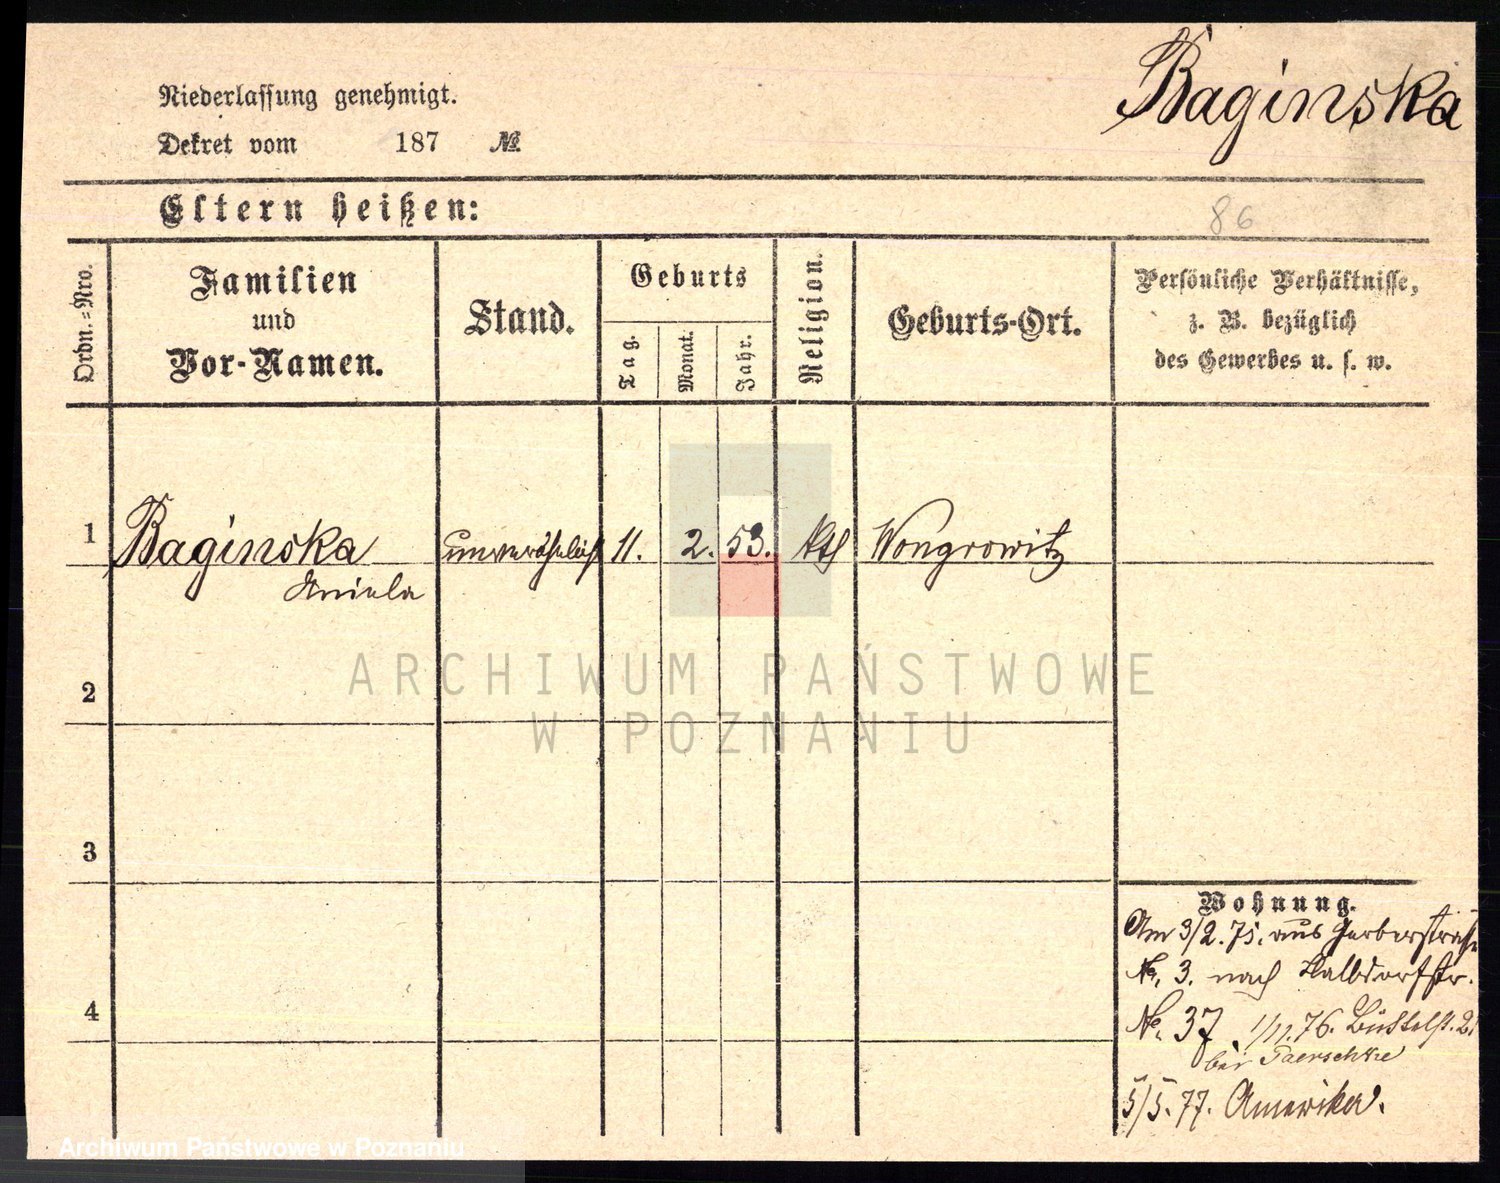 Baginska
Niederlassung genehmigt.
Dekret vom 187 №
Eltern heißen:
86
Ordn.=Nro.
Familien
und
Vor-Namen.
Stand.
Geburts
Tag.
Monat.
Jahr.
Religion.
Geburts-Ort.
Persönliche Verhältnisse,
z. B. bezüglich
des Gewerbes u. s. w.
1 Baginska unverehelicht 11. 2. 53. kth Wongrowitz
Aniela
ARCHIWUM PAŃSTWOWE
W POZNANIU
2
3
4
Wohnung.
Am 3/2. 75. aus Gerberstraße
No. 3. nach Halbdorfstr.
No. 37 1/11. 76. Büttelst. 2.
bei Paerschke
5/5. 77. Amerika.
Archiwum Państwowe w Poznaniu